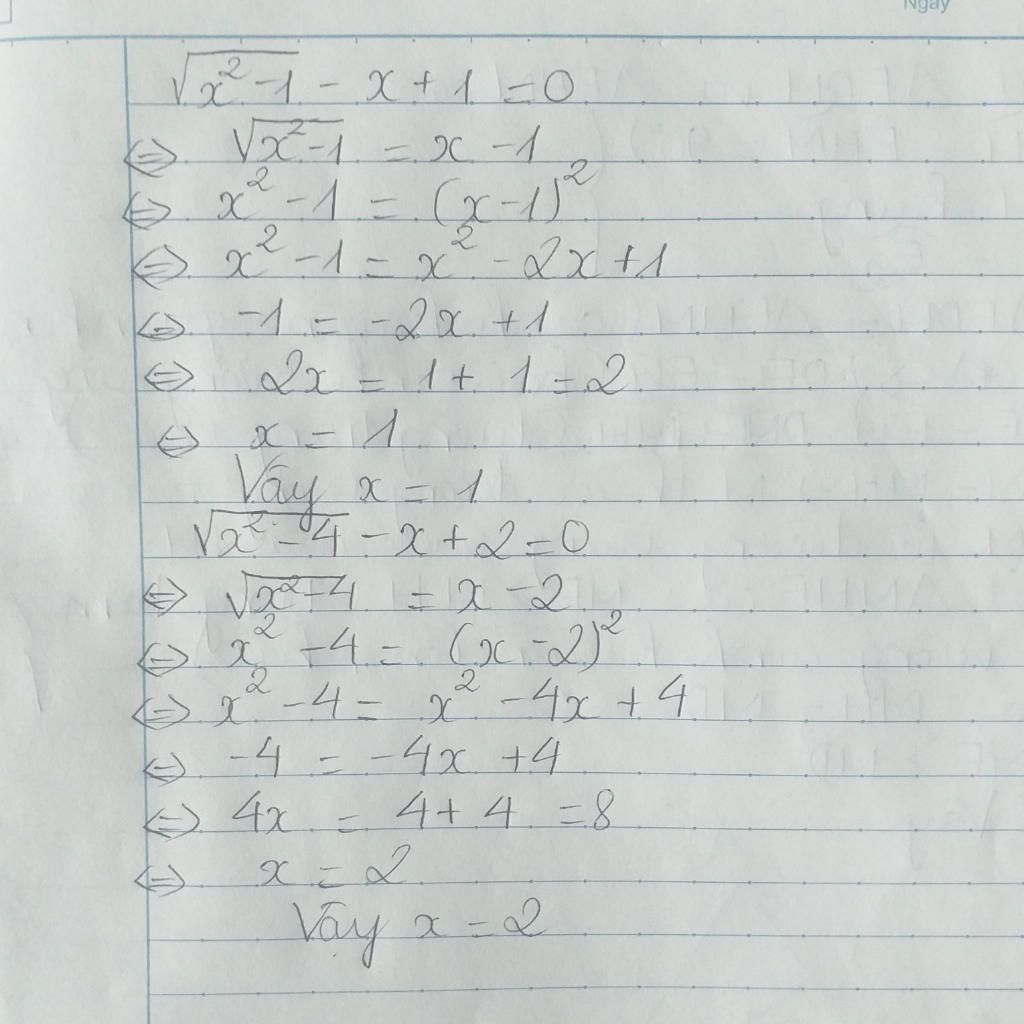 Ngày
√(x² - 1) - x + 1 = 0
⇔ √(x² - 1) = x - 1
⇔ x² - 1 = (x - 1)²
⇔ x² - 1 = x² - 2x + 1
⇔ -1 = -2x + 1
⇔ 2x = 1 + 1 = 2
⇔ x = 1
Vậy x = 1
√(x² - 4) - x + 2 = 0
⇔ √(x² - 4) = x - 2
⇔ x² - 4 = (x - 2)²
⇔ x² - 4 = x² - 4x + 4
⇔ -4 = -4x + 4
⇔ 4x = 4 + 4 = 8
⇔ x = 2
Vậy x = 2